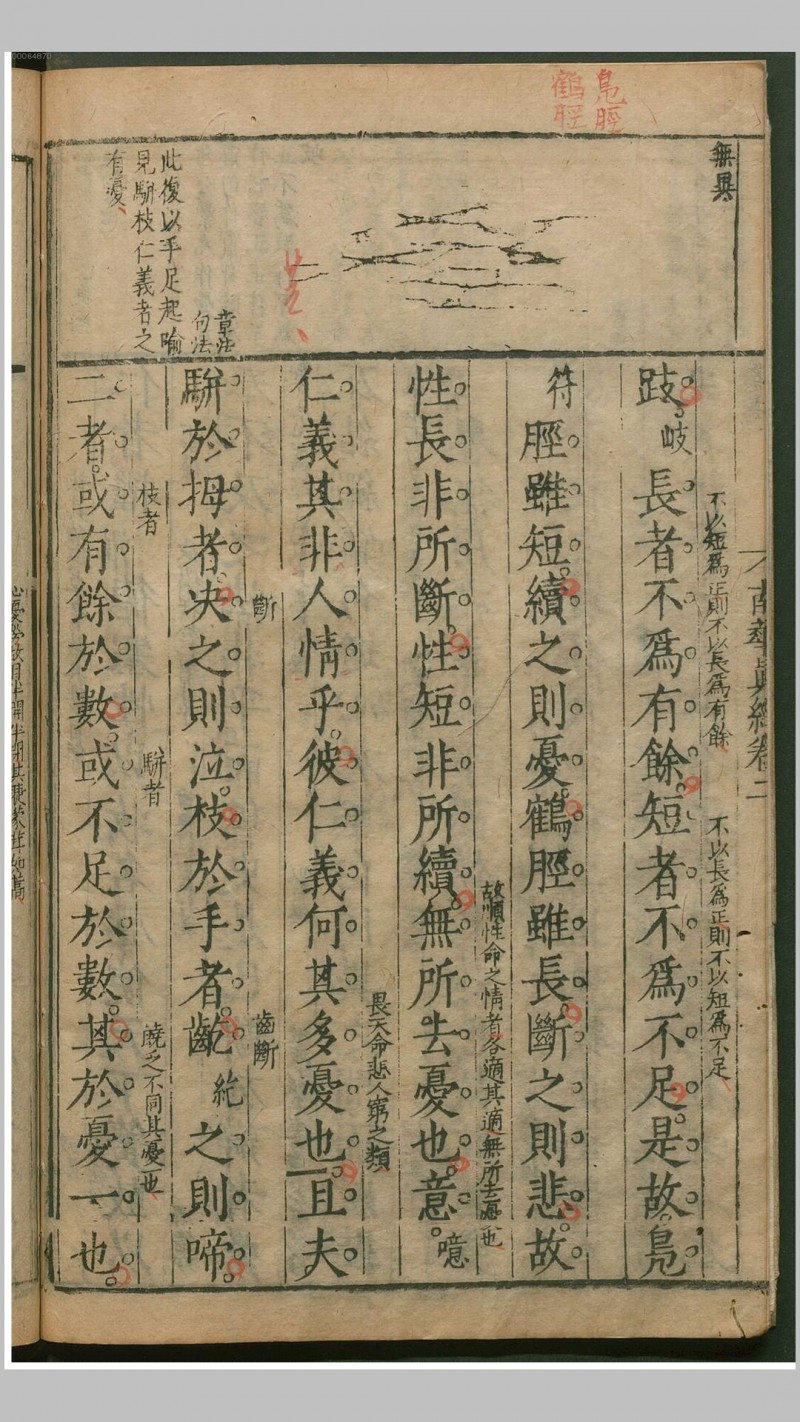 00064870
鳧脛
鶴脛
無異
章法
句法
此復以手足起喻
見駢枝仁義者之
有憂
南華真經卷二
不以短為正則不以長為有餘
不以長為正則不以短為不足
跂岐長者不為有餘短者不為不足是故鳧
符脛雖短續之則憂鶴脛雖長斷之則悲故
故順性命之情者各適其適無所去憂也
性長非所斷性短非所續無所去憂也意噫
畏天命悲人窮之類
仁義其非人情乎彼仁義何其多憂也且夫
斷
齒斷
駢於拇者决之則泣枝於手者齕紇之則啼
枝者
駢者
曉之不同其憂一也
二者或有餘於數或不足於數其於憂一也